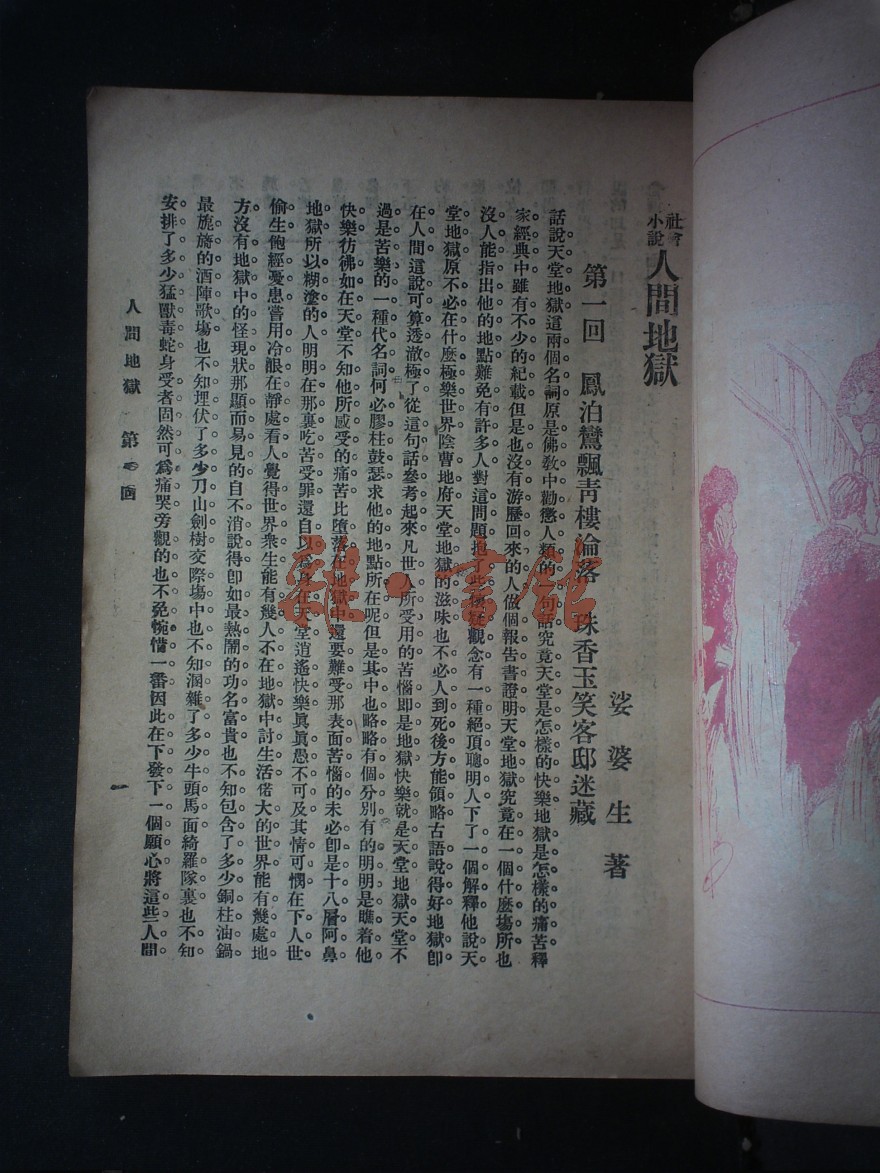 社會小說 人間地獄
娑婆生著
第一回 鳳泊鸞飄青樓淪落 珠香玉笑客邸迷藏
話說天堂地獄這兩個名詞原是佛教中勸懲人類的一句話究竟天堂是怎樣的快樂地獄是怎樣的痛苦釋
家經典中雖有不少的紀載但是也沒有游歷回來的人做個報告書證明天堂地獄究竟在一個什麼場所也
沒人能指出他的地點難免有許多人對這問題抱了些懷疑觀念有一種絕頂聰明人下了一個解釋他說天
堂地獄原不必在什麼極樂世界陰曹地府天堂地獄的滋味也不必人到死後方能領略古語說得好地獄卽
在人間這說可算透澈極了從這句話參考起來凡世人所受用的苦惱卽是地獄快樂就是天堂地獄天堂不
過是苦樂的一種代名詞何必膠柱鼓瑟求他的地點所在呢但是其中也略略有個分別有的明明是瞧着他
快樂彷彿如在天堂不知他所感受的痛苦比墮落在地獄中還要難受那表面苦惱的未必卽是十八層阿鼻
地獄所以糊塗的人明明在那裏吃苦受罪還自以爲身在天堂逍遙快樂眞眞愚不可及其情可憫在下人世
偷生飽經憂患嘗用冷眼在靜處看人覺得世界衆生能有幾人不在地獄中討生活偌大的世界能有幾處地
方沒有地獄中的怪現狀那顯而易見的自不消說得卽如最熱鬧的功名富貴也不知包含了多少銅柱油鍋
最旖旎的酒陣歌場也不知埋伏了多少刀山劍樹交際場中也不知溷雜了多少牛頭馬面綺羅隊裏也不知
安排了多少猛獸毒蛇身受者固然可爲痛哭旁觀的也不免惋惜一番因此在下發下一個願心將這些人間
人間地獄 第一回
一
雜·書館